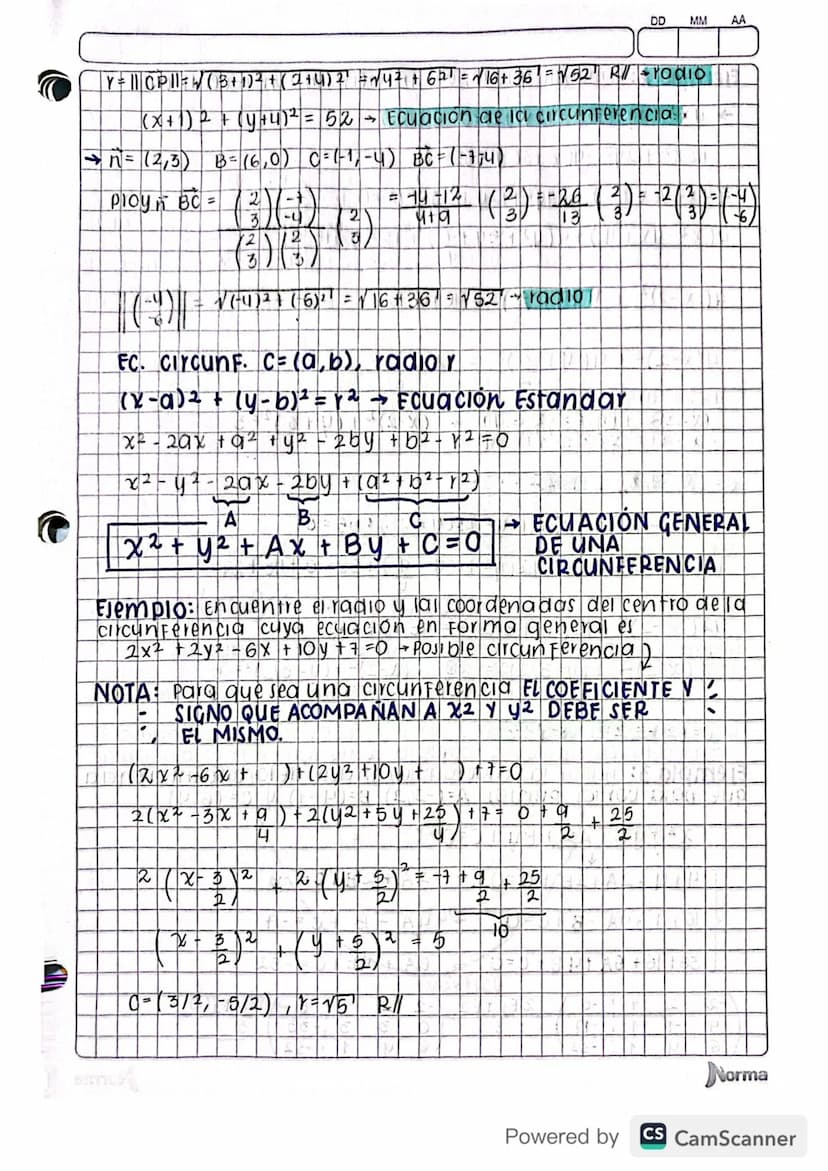 DD MM AA
r = ||CP|| = √(3+1)² + (2+4)² = √4² + 6² = √16 + 36 = √52 R// → radio
(x+1)² + (y+4)² = 52 → Ecuación de la circunferencia.
→ n⃗ = (2,3) B = (6,0) C = (-1,-4) BC⃗ = (-7,-4)
Proy n⃗ BC⃗ = (2 3)(-7 -4) / (2 3)(2 3) (2 3) = -14-12 / 4+9 (2 3) = -26/13 (2 3) = -2(2 3) = (-4 -6)
||(-4 -6)|| = √(-4)² + (-6)² = √16 + 36 = √52 → radio
EC. circunf. C = (a,b), radio r
(x-a)² + (y-b)² = r² → Ecuación Estandar
x² - 2ax + a² + y² - 2by + b² - r² = 0
x² - y² - 2ax - 2by + (a² + b² - r²)
A B C
x² + y² + Ax + By + C = 0 → ECUACIÓN GENERAL
DE UNA
CIRCUNFERENCIA
Ejemplo: Encuentre el radio y las coordenadas del centro de la
circunferencia cuya ecuación en forma general es
2x² + 2y² - 6x + 10y + 7 = 0 → Posible circunferencia
NOTA: Para que sea una circunferencia EL COEFICIENTE Y
SIGNO QUE ACOMPAÑAN A X2 Y Y2 DEBE SER
EL MISMO.
(2x² - 6x + ) + (2y² + 10y + ) + 7 = 0
2(x² - 3x + 9/4) + 2(y² + 5y + 25/4) + 7 = 0 + 9/2 + 25/2
2(x - 3/2)² + 2(y + 5/2)² = -7 + 9/2 + 25/2
10
(x - 3/2)² + (y + 5/2)² = 5
C = (3/2, -5/2), r = √5 R//
Norma
Powered by CS CamScanner